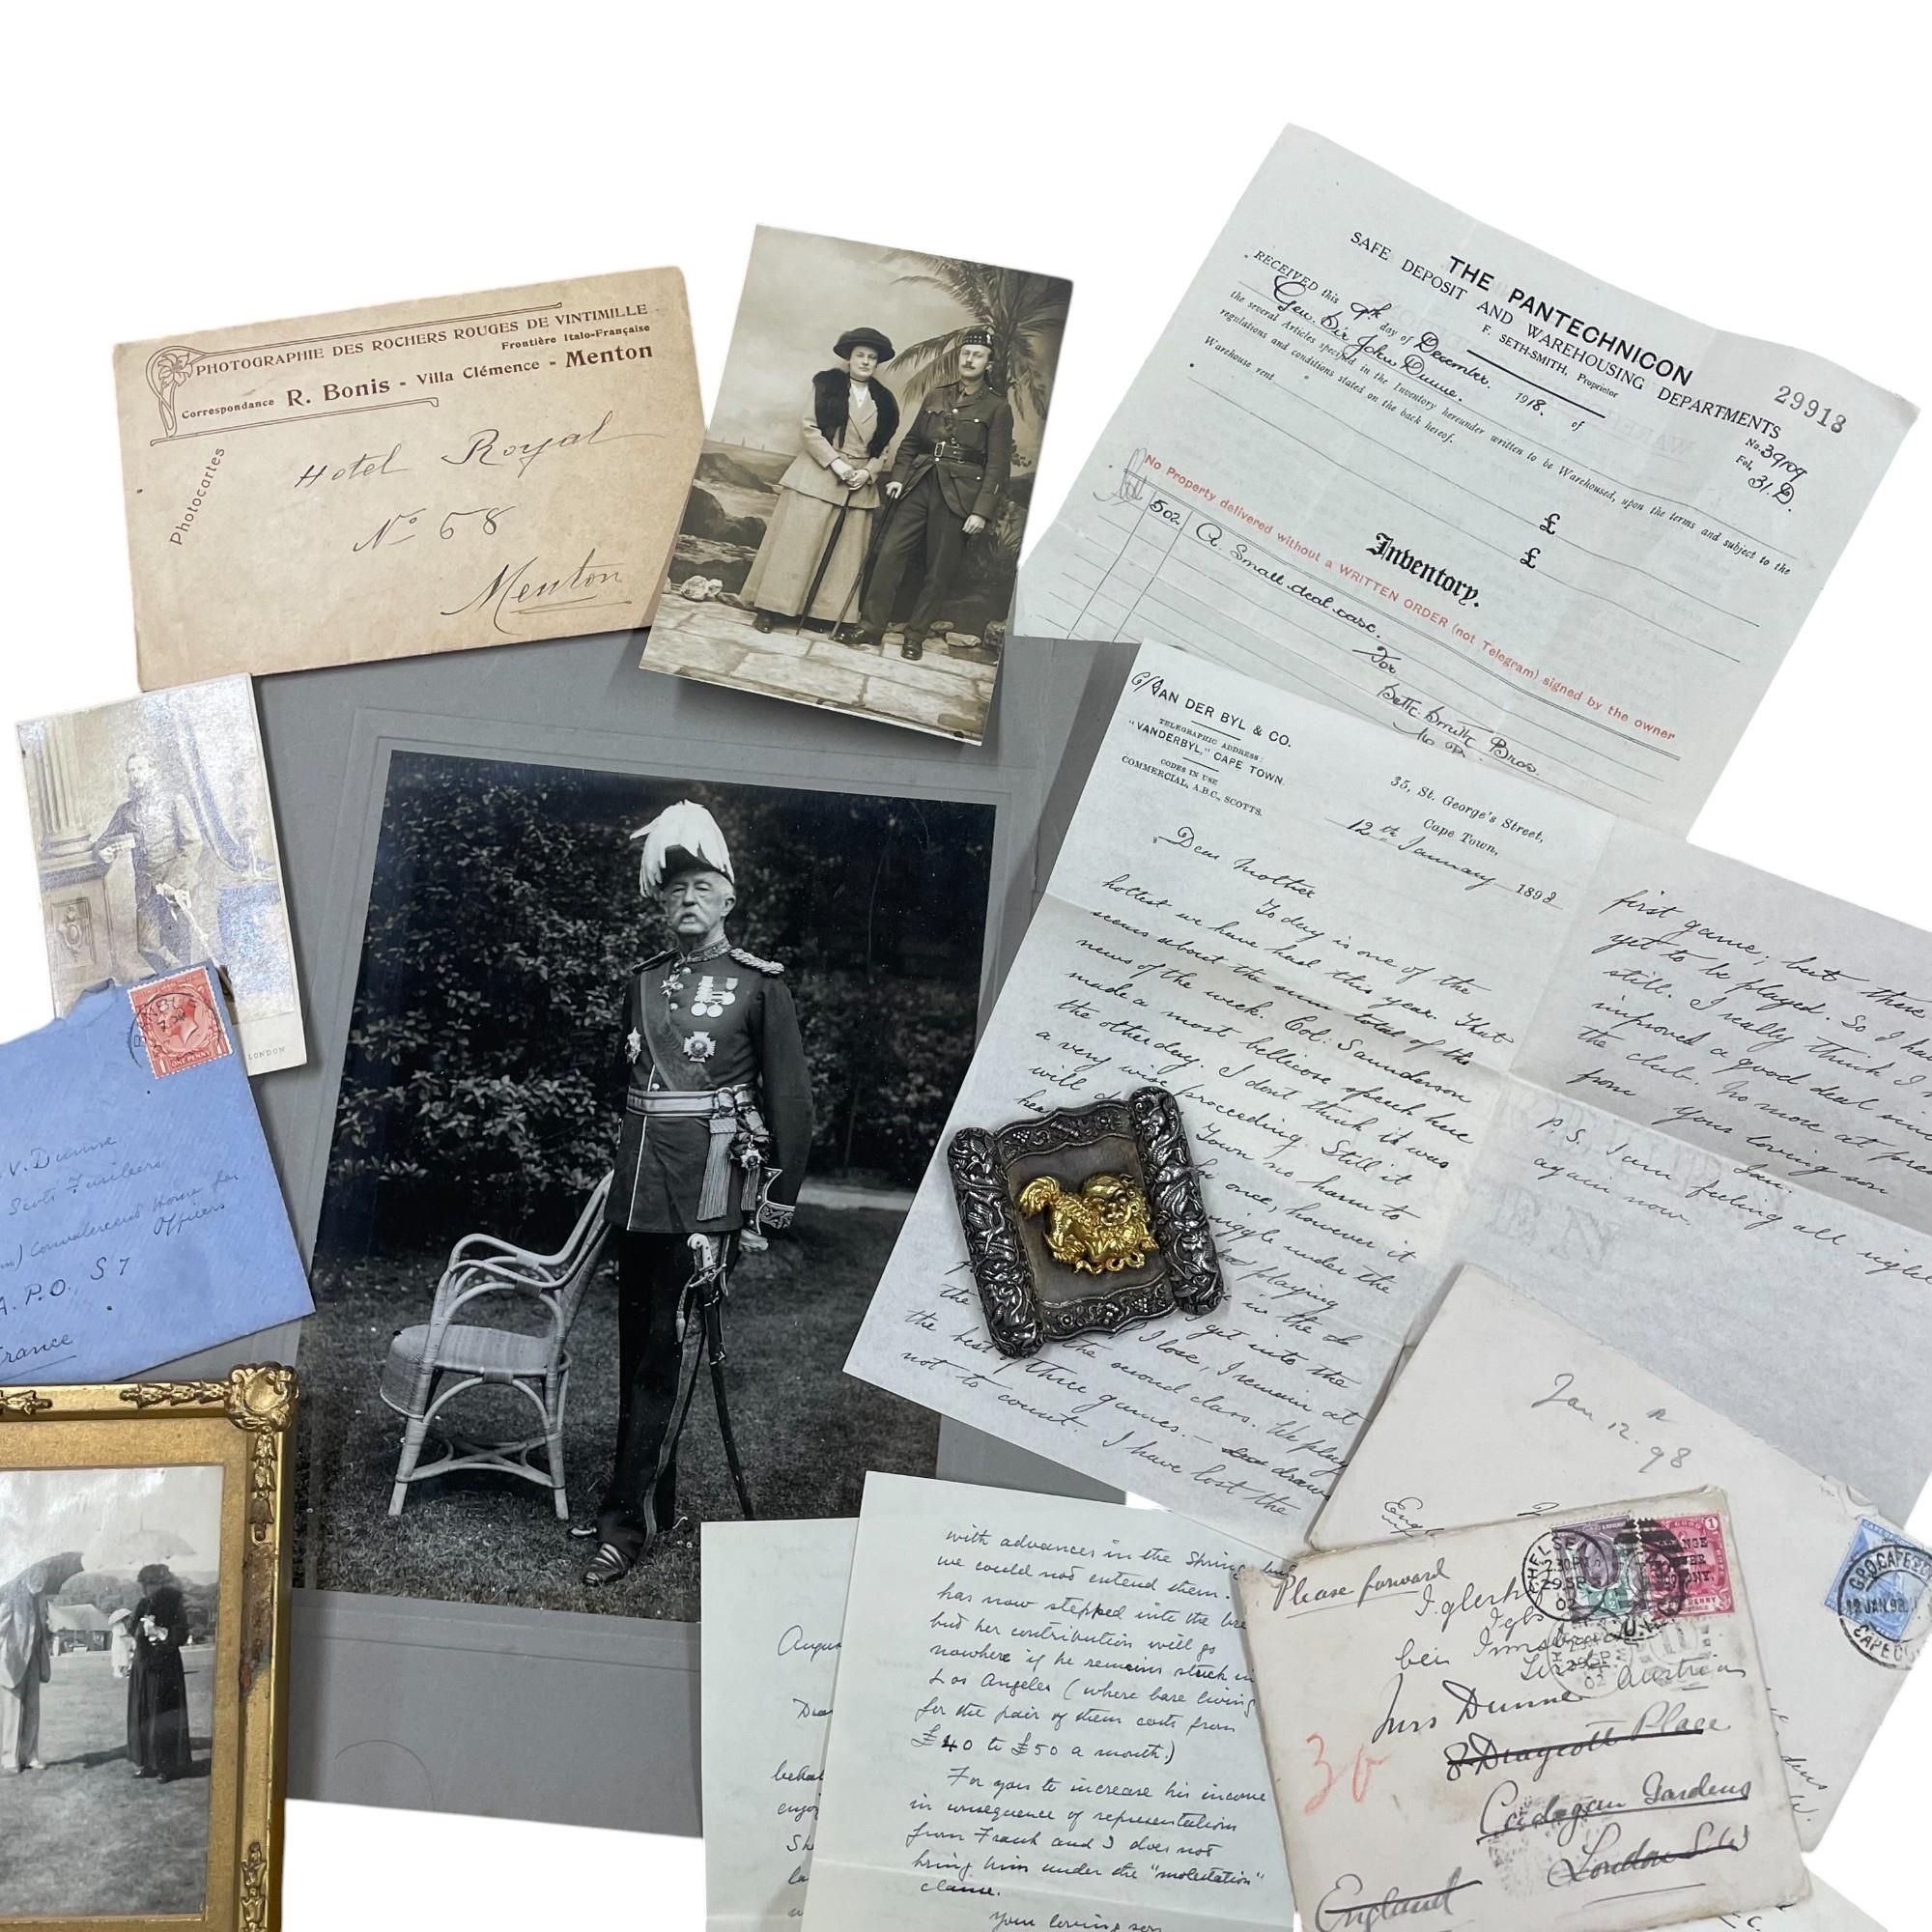 PHOTOGRAPHIE DES ROCHERS ROUGES DE VINTIMILLE
Frontière Italo-Française
Correspondance R. Bonis - Villa Clémence - Menton
Photocartes
Hotel Royal
No 68
Menton
THE PANTECHNICON
SAFE DEPOSIT AND WAREHOUSING DEPARTMENTS
F. SETH-SMITH, Proprietor
29918
No. 39109
Fol. 31.D
RECEIVED this 9th day of December. 1918. of
Gen. Sir John Dunne.
the several Articles specified in the Inventory hereunder written to be Warehoused, upon the terms and subject to the
regulations and conditions stated on the back hereof.
Warehouse rent
£
£
Inventory.
No Property delivered without a WRITTEN ORDER (not Telegram) signed by the owner
502 A. Small deal case.
For
Bros.
LONDON
ONE PENNY
V. Dunne
Scots Fusiliers
Convalescent Home for
Officers
A.P.O. S 7
France
C/o VAN DER BYL & CO.
TELEGRAPHIC ADDRESS:
"VANDERBYL," CAPE TOWN.
CODES IN USE
COMMERCIAL, A.B.C., SCOTTS.
35, St. George's Street,
Cape Town,
12th January 1898
Dear Mother
Today is one of the
hottest we have had this year. That
seems about the sum total of the
news of the week. Col: Saunderson
made a most bellicose speech here
the other day. I don't think it was
a very wise proceeding. Still it
will
Town no harm to
once, however it
wriggle under the
playing
the in the
get into the
the I lose, I remain at
the second class. We play
the best of three games. - draws
not to count. I have lost the
first game; but there
yet to be played. So I ha
still. I really think I
improved a good deal since
the club. No more at pre
from Your loving son
Ian.
P.S. I am feeling all right
again now.
Jan 12th 98
G.P.O. CAPE
12 JAN. 98
CAPE
with advances in the Spring but
we could not extend them.
has now stepped into the bre
but her contribution will go
nowhere if he remains stuck in
Los Angeles (where bare living
for the pair of them costs from
£40 to £50 a month.)
For you to increase his income
in consequence of representations
from Frank and I does not
bring him under the "molestation"
clause.
Your loving son
Augus
Dea
behal
enjo
She
la
Please forward
CHELSEA
29 SP
02
Iglerh
Igls
bei Innsbruck
Tirol
Austria
Mrs Dunne
8 Draycott Place
Cadogan Gardens
London S.W
England
30